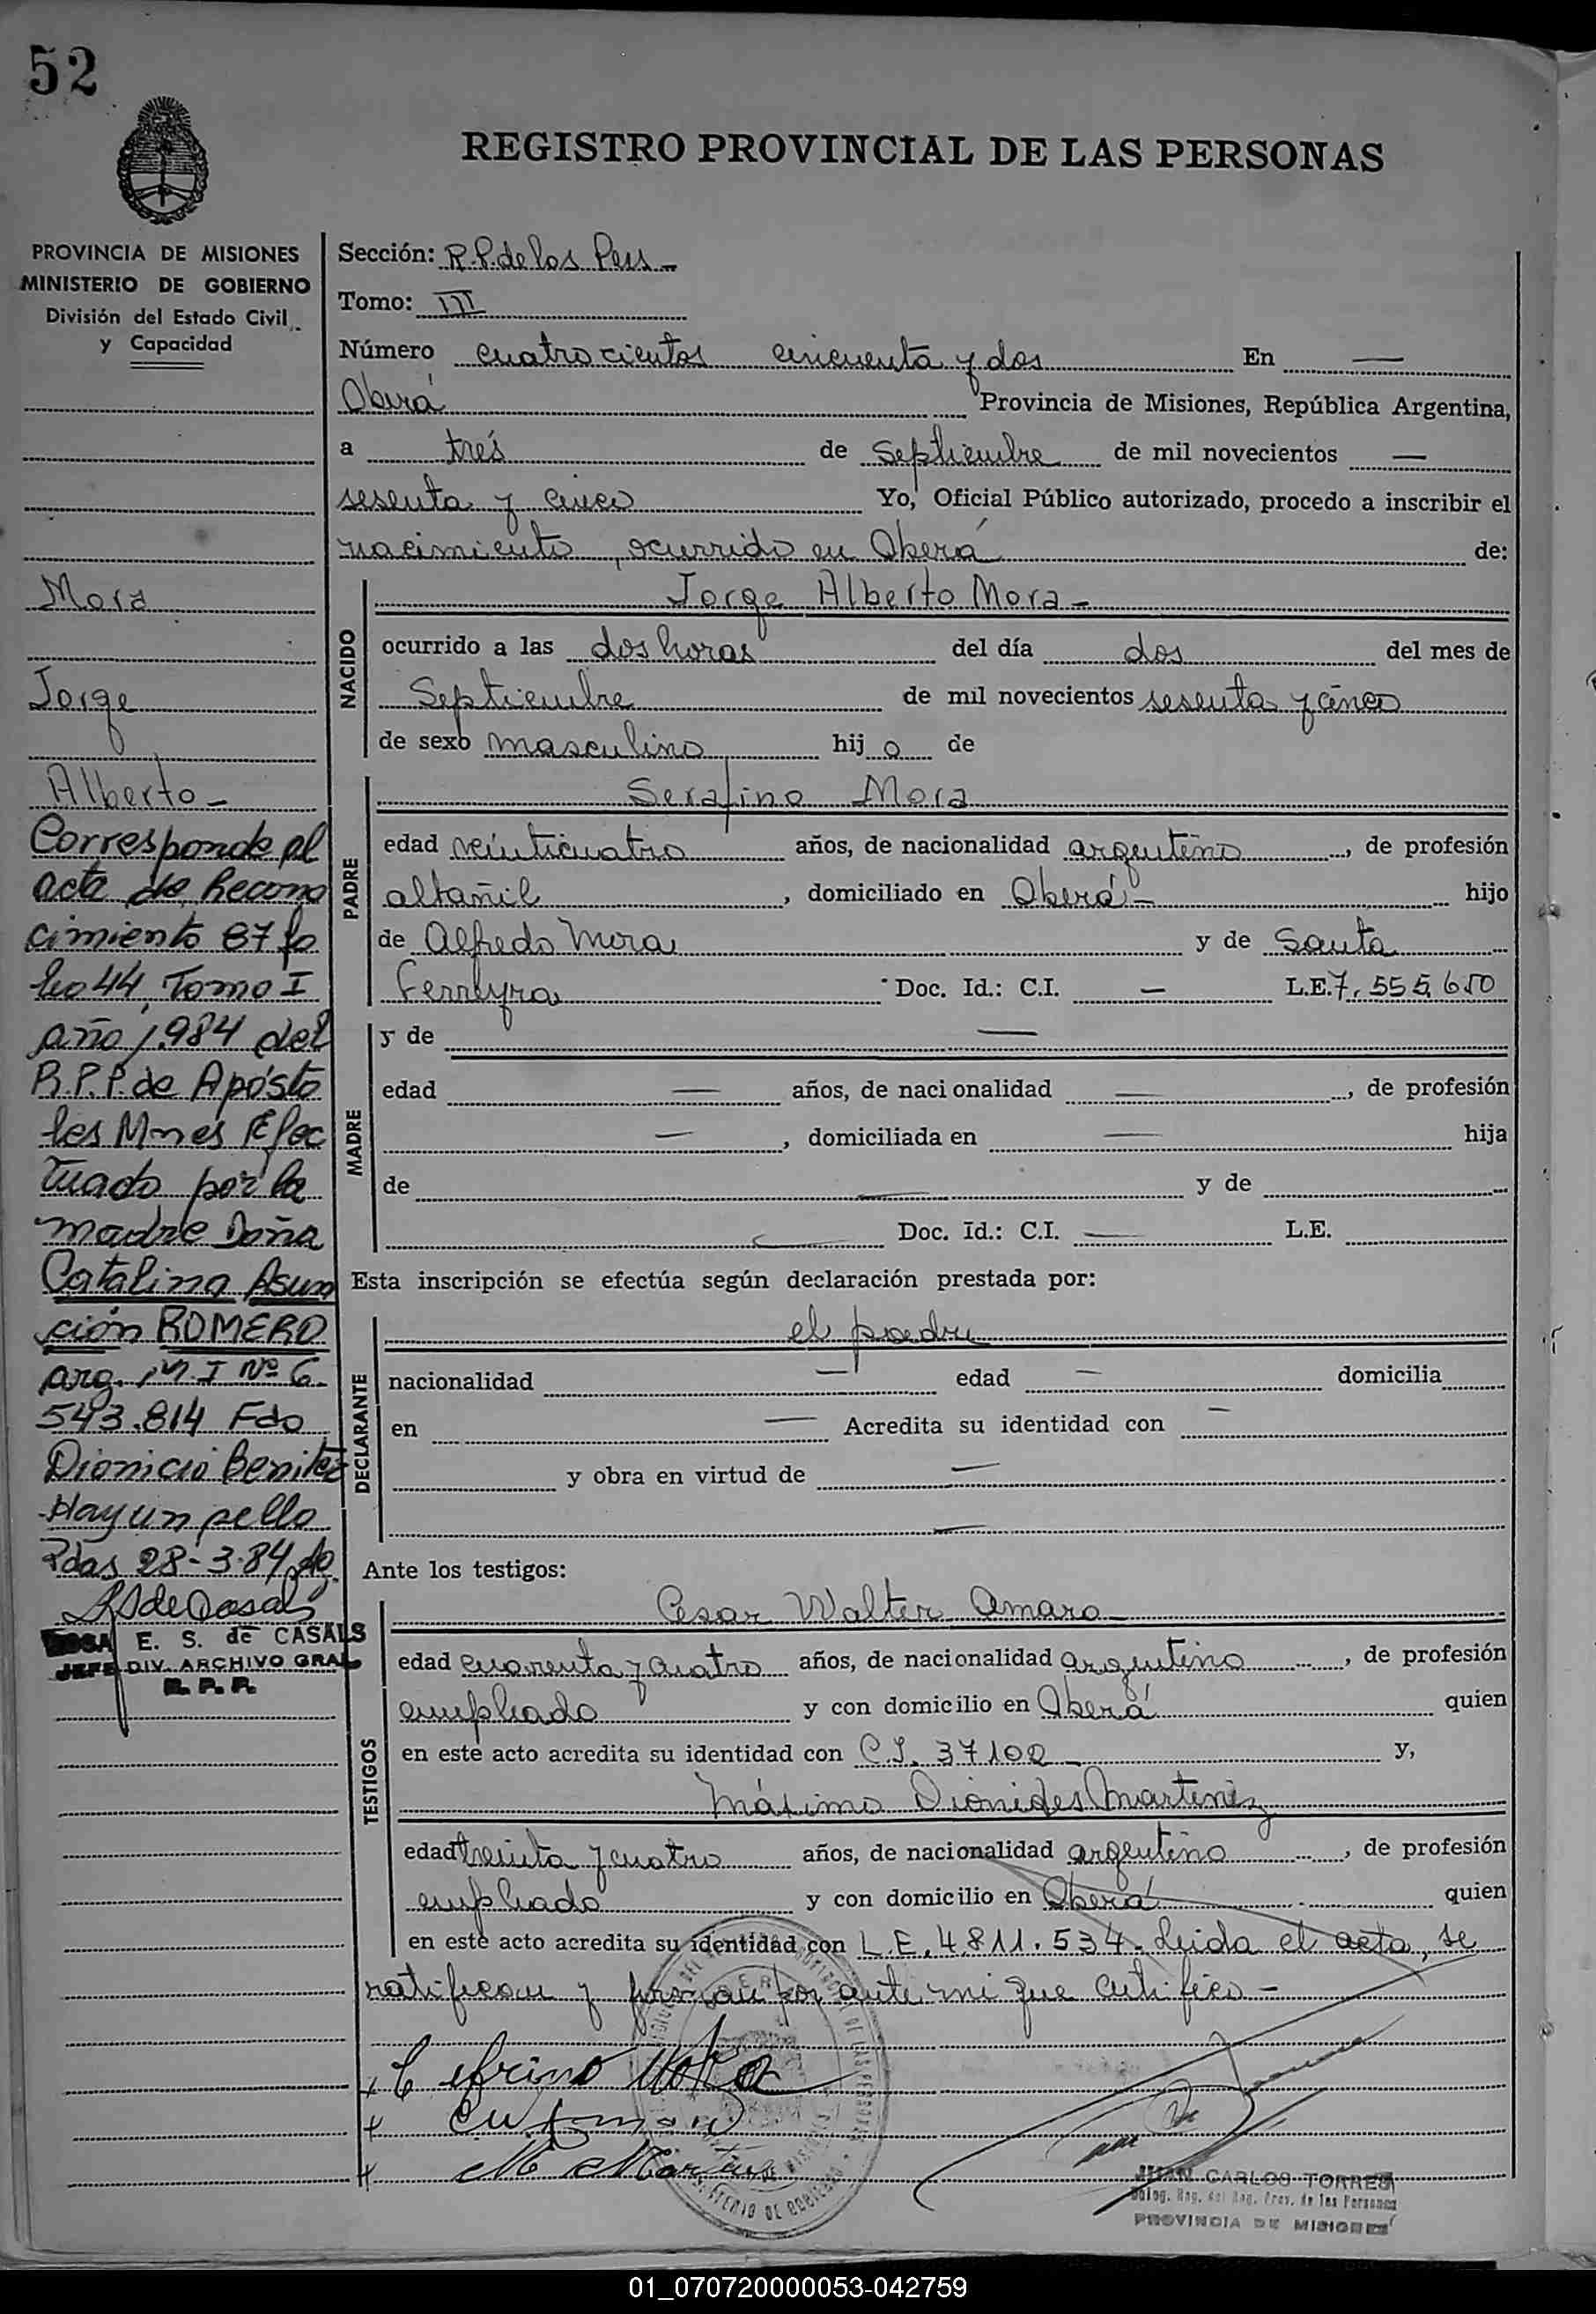 52
REGISTRO PROVINCIAL DE LAS PERSONAS
PROVINCIA DE MISIONES
MINISTERIO DE GOBIERNO
División del Estado Civil
y Capacidad
Mora
Jorge
Alberto
Corresponde al
acta de Recono
cimiento 87 fo
lio 44, Tomo I
año 1.984 del
R.P.P. de Aposto
les Mnes Efec
tuado por la
madre Doña
Catalina Asun
ción ROMERO
arg. M.I Nº 6.
543.814 Fdo
Dionicio Benitez
Hay un sello
Pdas 28-3-84
ROSA E. S. de CASALS
JEFE DIV. ARCHIVO GRAL
R. P. P.
Sección: R.P. de las Pers -
Tomo: III
Número cuatrocientos cincuenta y dos En —
Oberá Provincia de Misiones, República Argentina,
a tres de Septiembre de mil novecientos —
sesenta y cinco Yo, Oficial Público autorizado, procedo a inscribir el
nacimiento, ocurrido en Oberá de:
NACIDO
Jorge Alberto Mora -
ocurrido a las dos horas del día dos del mes de
Septiembre de mil novecientos sesenta y cinco
de sexo masculino hij o de
PADRE
Serafino Mora
edad veinticuatro años, de nacionalidad argentino, de profesión
albañil, domiciliado en Oberá - hijo
de Alfredo Mora y de Santa
Ferreyra Doc. Id.: C.I. — L.E. 7.555.650
MADRE
y de —
edad — años, de nacionalidad —, de profesión
—, domiciliada en — hija
de — y de
— Doc. Id.: C.I. — L.E.
Esta inscripción se efectúa según declaración prestada por:
DECLARANTE
el padre
nacionalidad — edad — domicilia
en — Acredita su identidad con —
y obra en virtud de —
—
Ante los testigos:
TESTIGOS
Cesar Walter Amaro
edad cuarenta y cuatro años, de nacionalidad argentino, de profesión
empleado y con domicilio en Oberá quien
en este acto acredita su identidad con C.I. 37102 y,
Máximo Martinez
edad treinta y cuatro años, de nacionalidad argentino, de profesión
empleado y con domicilio en Oberá quien
en este acto acredita su identidad con L.E. 4.811.534. Leida el acta, se
ratifican y firman por ante mi que certifico -
JUAN CARLOS TORRES
PROVINCIA DE MISIONES
01_070720000053-042759